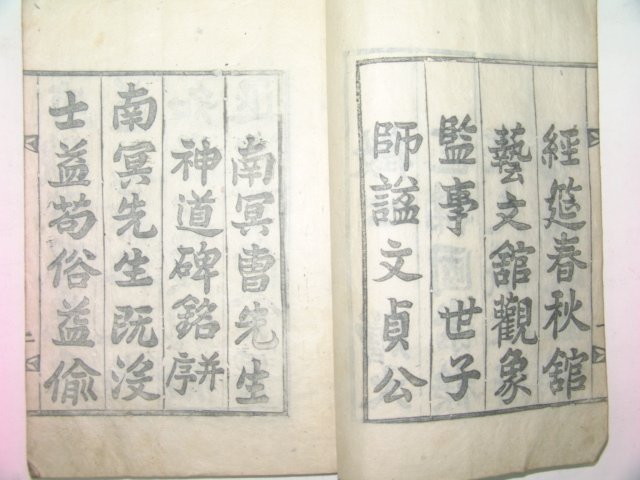 經筵春秋館
藝文館觀象
監事 世子
師謚文貞公
南冥曺先生
神道碑銘并序
南冥先生旣沒
士益苟俗益偷
一
二